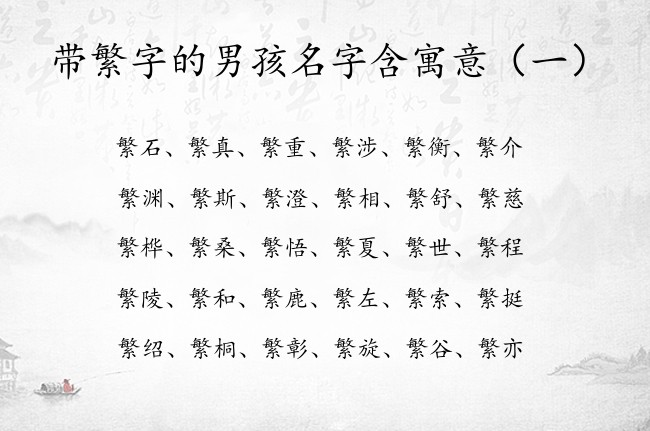 带繁字的男孩名字含寓意（一）
繁石、繁真、繁重、繁涉、繁衡、繁介
繁渊、繁斯、繁澄、繁相、繁舒、繁慈
繁桦、繁桑、繁悟、繁夏、繁世、繁程
繁陵、繁和、繁鹿、繁左、繁索、繁挺
繁绍、繁桐、繁彰、繁旋、繁谷、繁亦